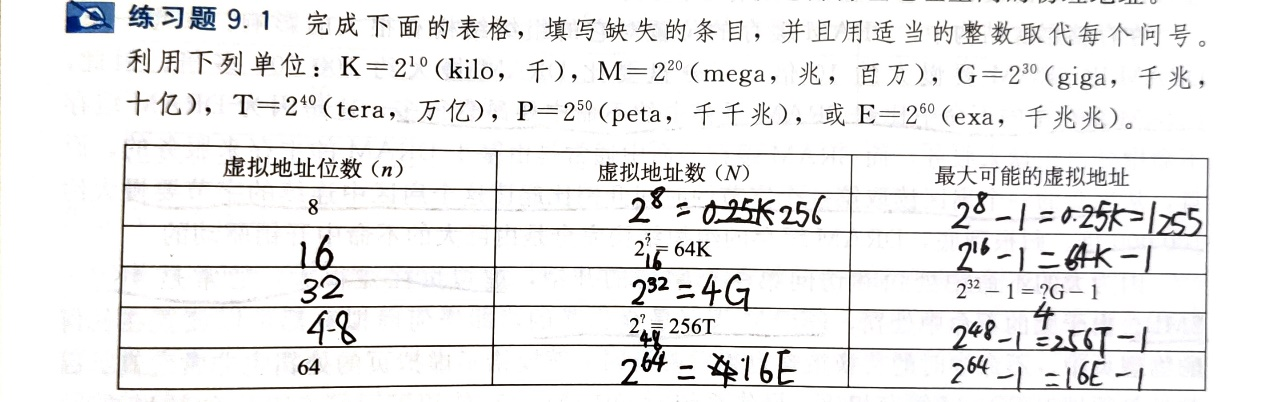 练习题 9.1 完成下面的表格，填写缺失的条目，并且用适当的整数取代每个问号。
利用下列单位：K=2¹⁰(kilo，千)，M=2²⁰(mega，兆，百万)，G=2³⁰(giga，千兆，
十亿)，T=2⁴⁰(tera，万亿)，P=2⁵⁰(peta，千千兆)，或 E=2⁶⁰(exa，千兆兆)。
虚拟地址位数（n） 虚拟地址数（N） 最大可能的虚拟地址
8 2⁸ = 0.25K 256 2⁸-1 = 0.25K-1 255
16 2^? = 64K 16 2¹⁶-1 = 64K-1
32 2³² = 4G 2³²-1 = ?G-1 4
48 2^? = 256T 48 2⁴⁸-1 = 256T-1
64 2⁶⁴ = 16E 2⁶⁴-1 = 16E-1